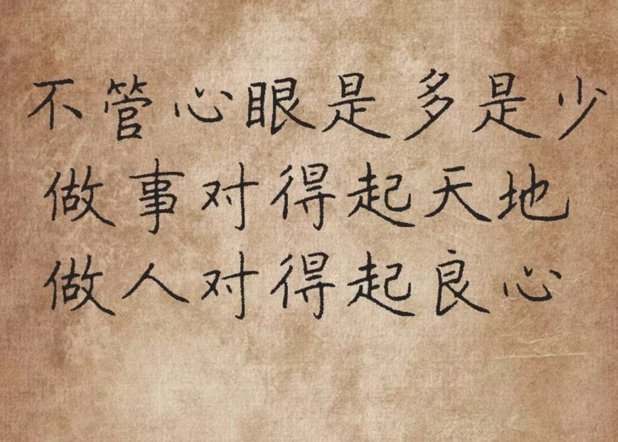 不管心眼是多是少
做事对得起天地
做人对得起良心